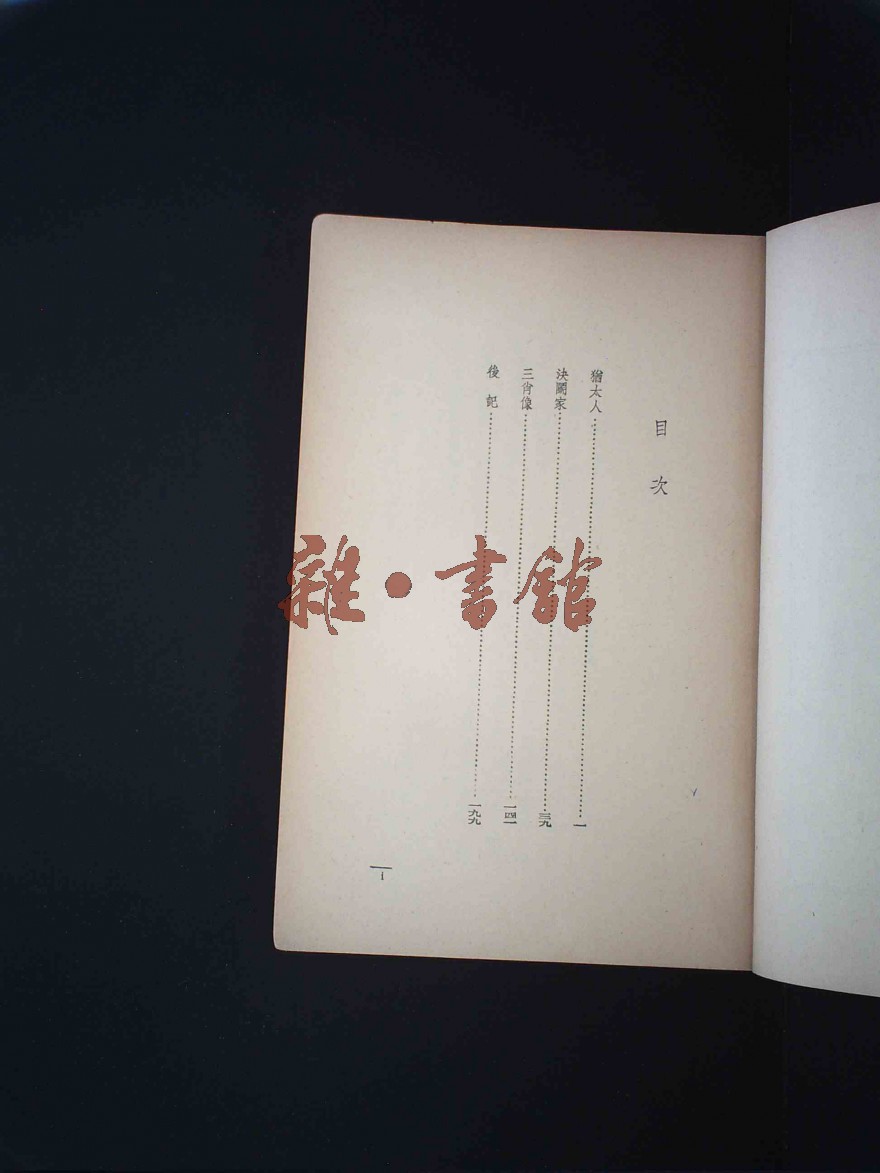 目次
猶太人……一
決鬥家……三九
三肖像……一四一
後記……一九九
1
雜·書館